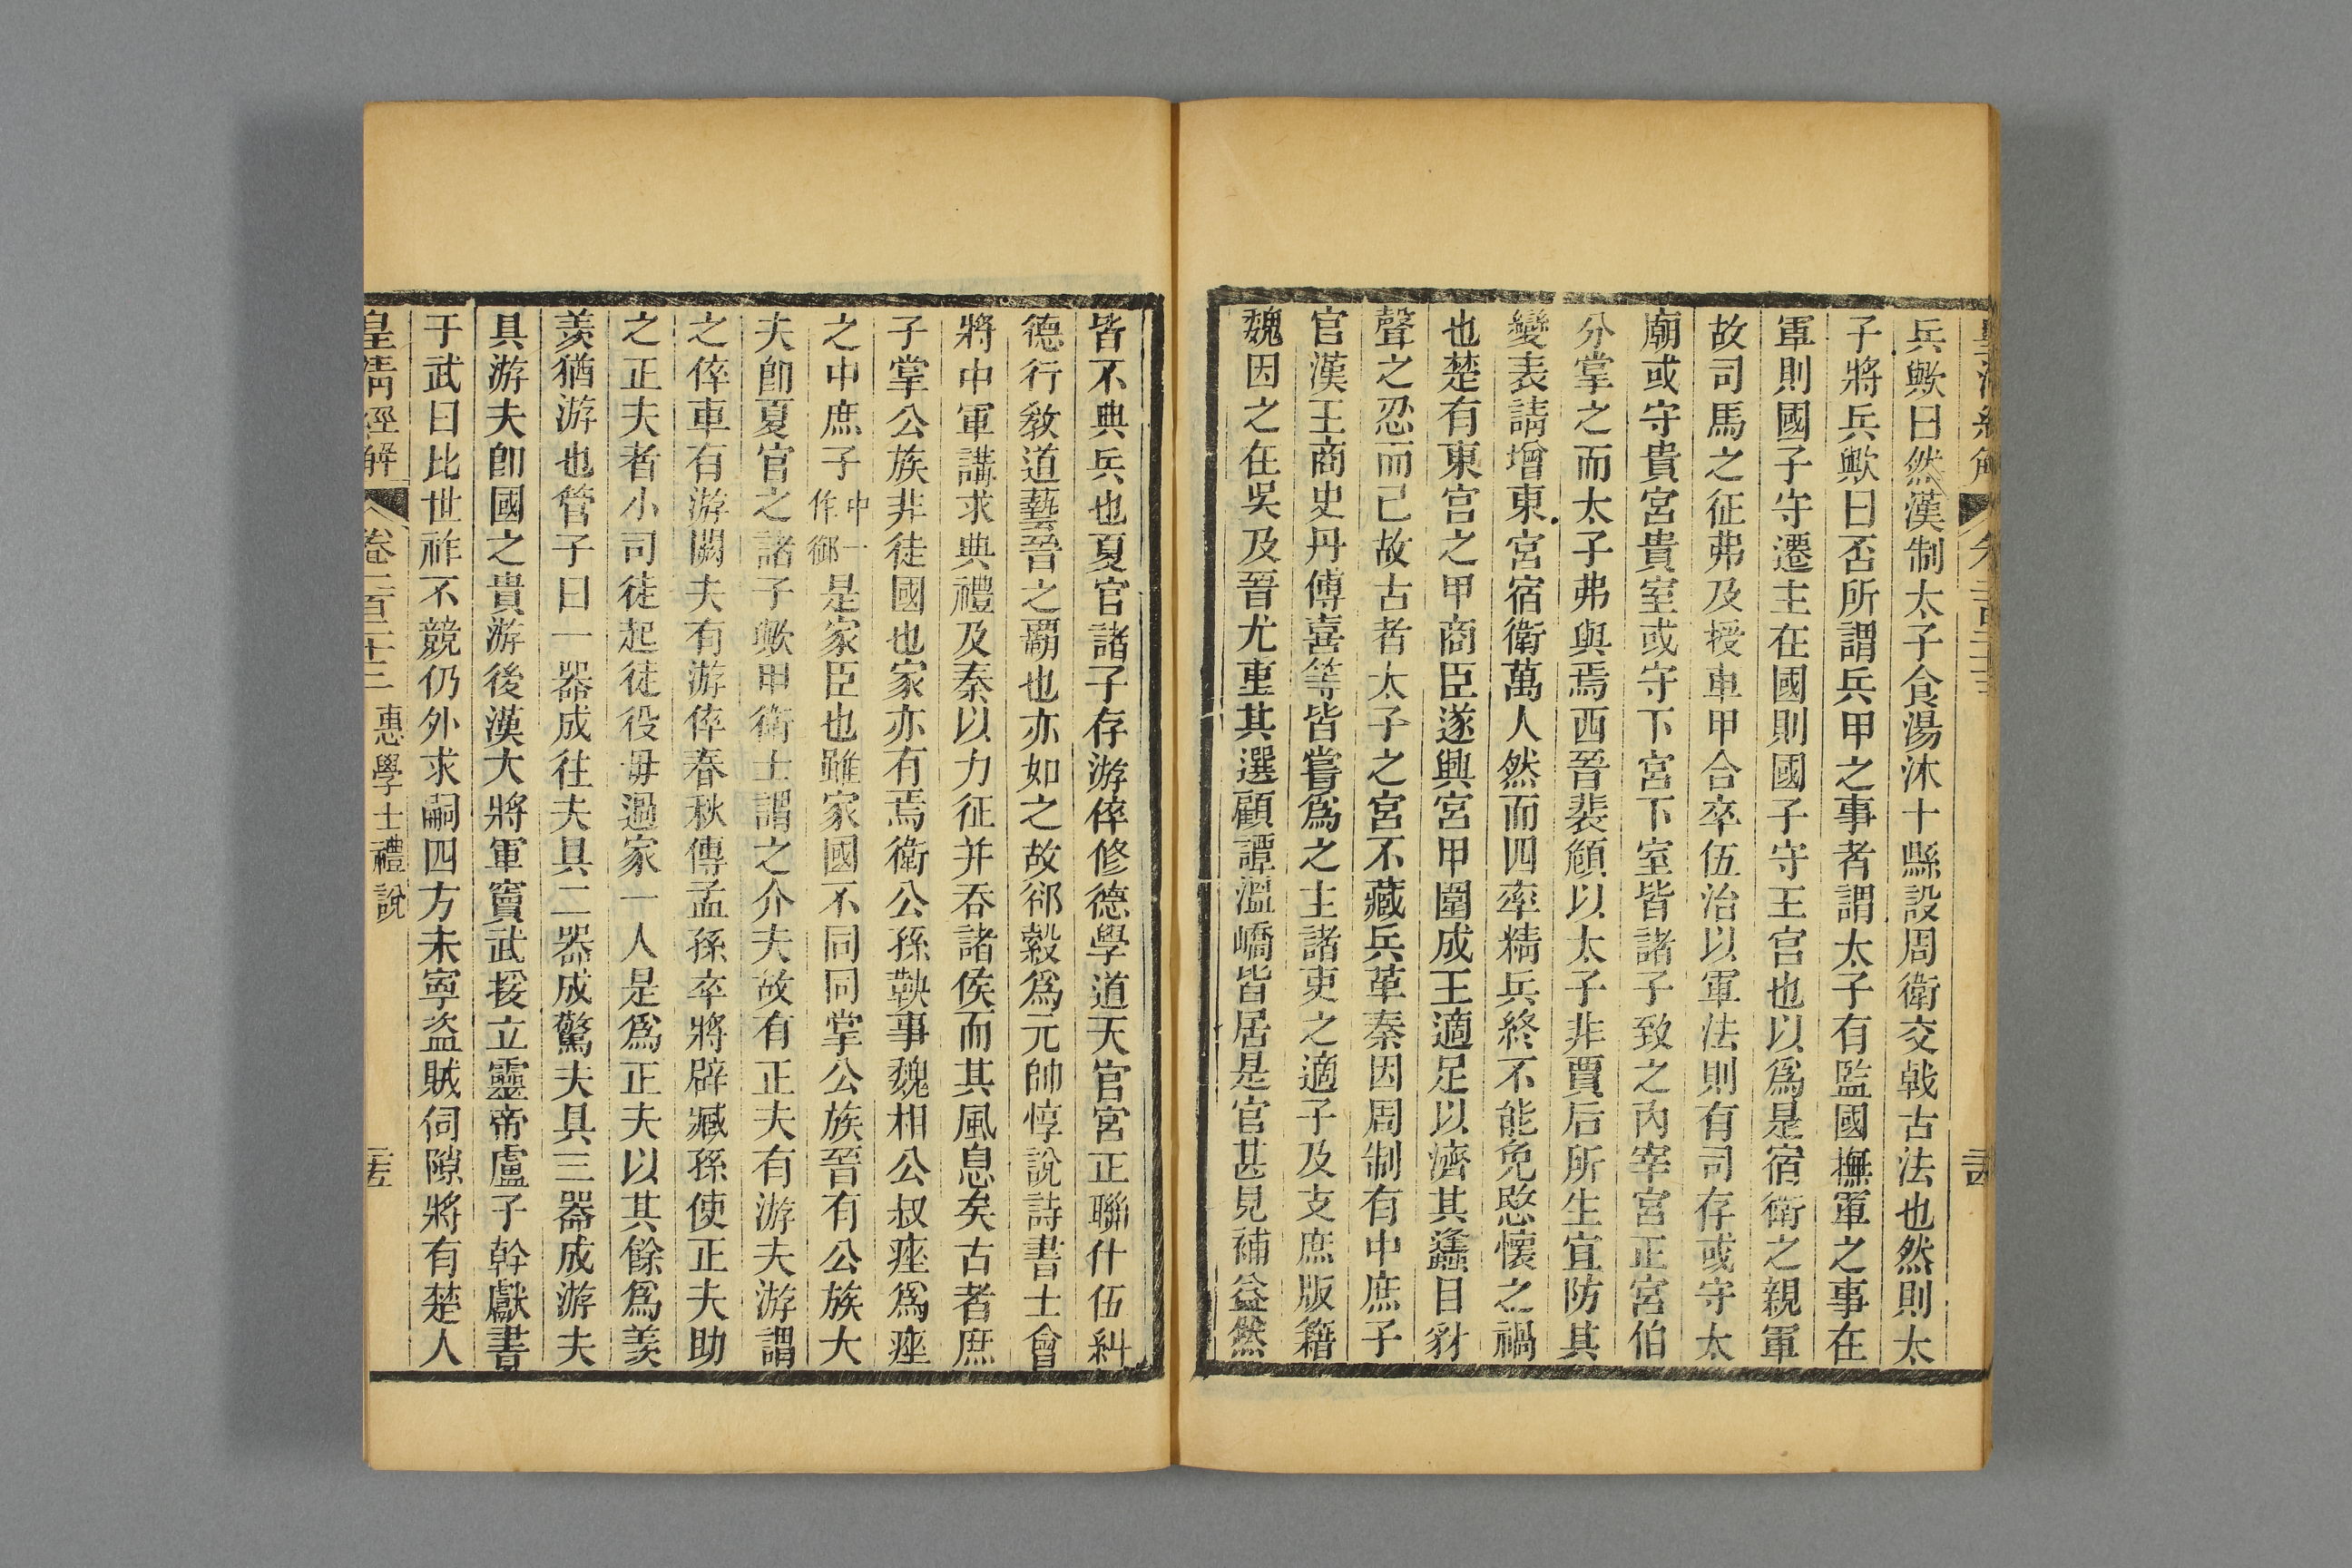 兵歟曰然漢制太子食湯沐十縣設周衛交戟古法也然則太
子將兵歟曰否所謂兵甲之事者謂太子有監國撫軍之事在
軍則國子守遷主在國則國子守王宫也以爲是宿衛之親軍
故司馬之征弗及授車甲合卒伍治以軍法則有司存或守太
廟或守貴宮貴室或守下宮下室皆諸子致之內宰宮正宮伯
分掌之而太子弗與焉西晉裴頠以太子非賈后所生宜防其
變表請增東宮宿衛萬人然而四率精兵終不能免愍懷之禍
也楚有東宮之甲商臣遂興宮甲圍成王適足以濟其蠭目豺
聲之忍而已故古者太子之宮不藏兵革秦因周制有中庶子
官漢王商史丹傅喜等皆嘗爲之主諸吏之適子及支庶版籍
魏因之在吳及晉尤重其選顧譚溫嶠皆居是官甚見補益然
皆不典兵也夏官諸子存游倅修德學道天官宮正聯什伍糾
德行敎道藝晉之覇也亦如之故郤縠爲元帥惇說詩書士會
將中軍講求典禮及秦以力征并吞諸侯而其風息矣古者庶
子掌公族非徒國也家亦有焉衛公孫鞅事魏相公叔痤爲痤
之中庶子中一作御是家臣也雖家國不同同掌公族晉有公族大
夫卽夏官之諸子歟甲衛士謂之介夫故有正夫有游夫游謂
之倅車有游闕夫有游倅春秋傳孟孫卒將辟臧孫使正夫助
之正夫者小司徒起徒役毋過家一人是爲正夫以其餘爲羨
羨猶游也管子曰一器成往夫具二器成驚夫具三器成游夫
具游夫卽國之貴游後漢大將軍竇武援立靈帝盧子幹獻書
于武曰比世祚不競仍外求嗣四方未寧盜賊伺隙將有楚人
皇清經解 卷二百二十三 惠學士禮說 三五